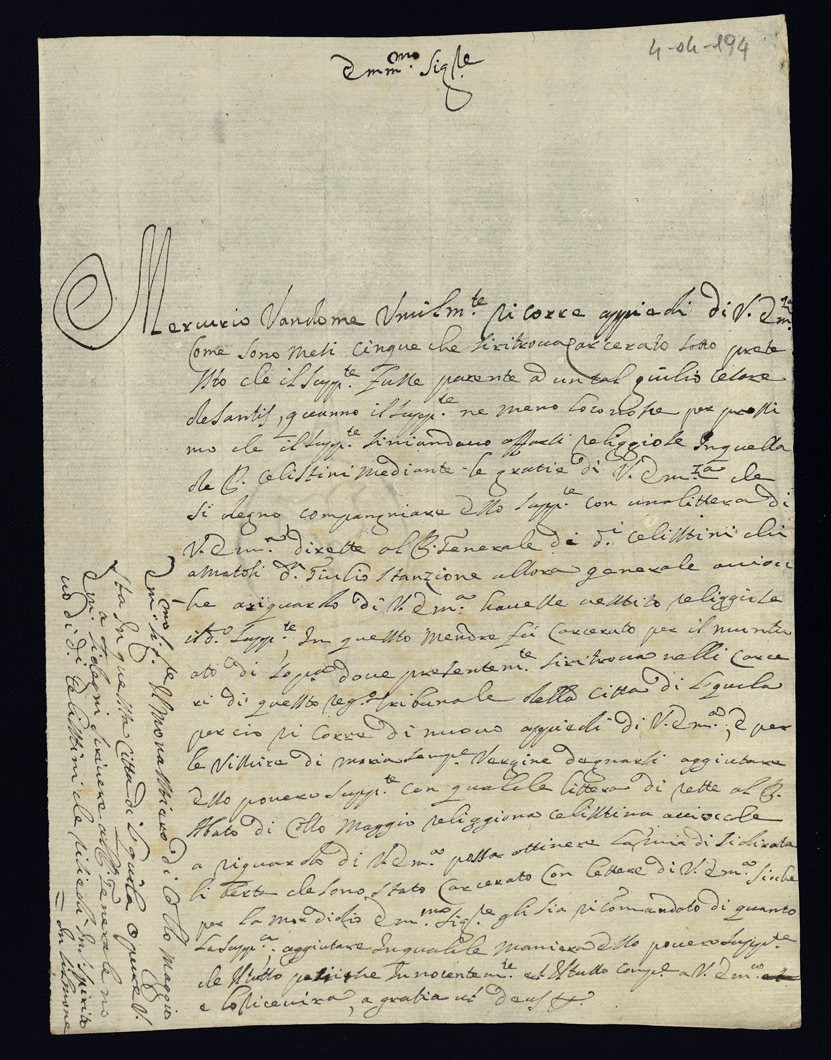 4-04-194
Emm.mo Sig.re
Mercurio Vandome Umilm.te ricorre appiedi di V. Em.za
Come sono mesi cinque che si ritrova Carcerato sotto prete
sto che il supp.te fusse parente d'un tal giulio cesare
de santis, quanno il supp.te ne meno lo conosse per prossi
mo che il supp.te
de P. Celistini mediante le gratie di V. Em.za che
si degno compangniare detto supp.te con una littera di
V. Em.a dirette al P. Generale di d.i Celistini chi
amatosi d. Giulio Stanzione allora generale accioc
he a riguardo di V. Em.a havesse vestito religgiose
il d.o supp.te, In questo mendre fu carcerato per il
di dove presentem.te si ritrova nelli carce
ri di questo reg.o tribunale della Citta di Lquila
per cio ricorre di nuovo appiedi di V. Em.a, e per
le viscire di maria semp.e Vergine degnarsi aggiutare
detto povero supp.te con qualche littera di rette al P.
Abato di Collo Maggio religgiona Celistina accioche
a riguardo di V. Em.a possa ottinere
che sono stato Carcerato con lettere di V. Em.a sicche
per la mor di dio Em.mo Sig.re gli sia ricomandato di quanto
la supp.a, aggiutare in qualche maniera detto povero supp.te
che il tutto Innocentem.te et il tutto a V. Em.a
e lo ricevira, a gratia ut deus
Em.mo Sig.re il monastiero di Collo Maggio
sta in questa Citta di Lquila o pure V.
Em.a si degni scrivere al P. Generale
di di Celistini che risiede in S. spirito
in Sulmone